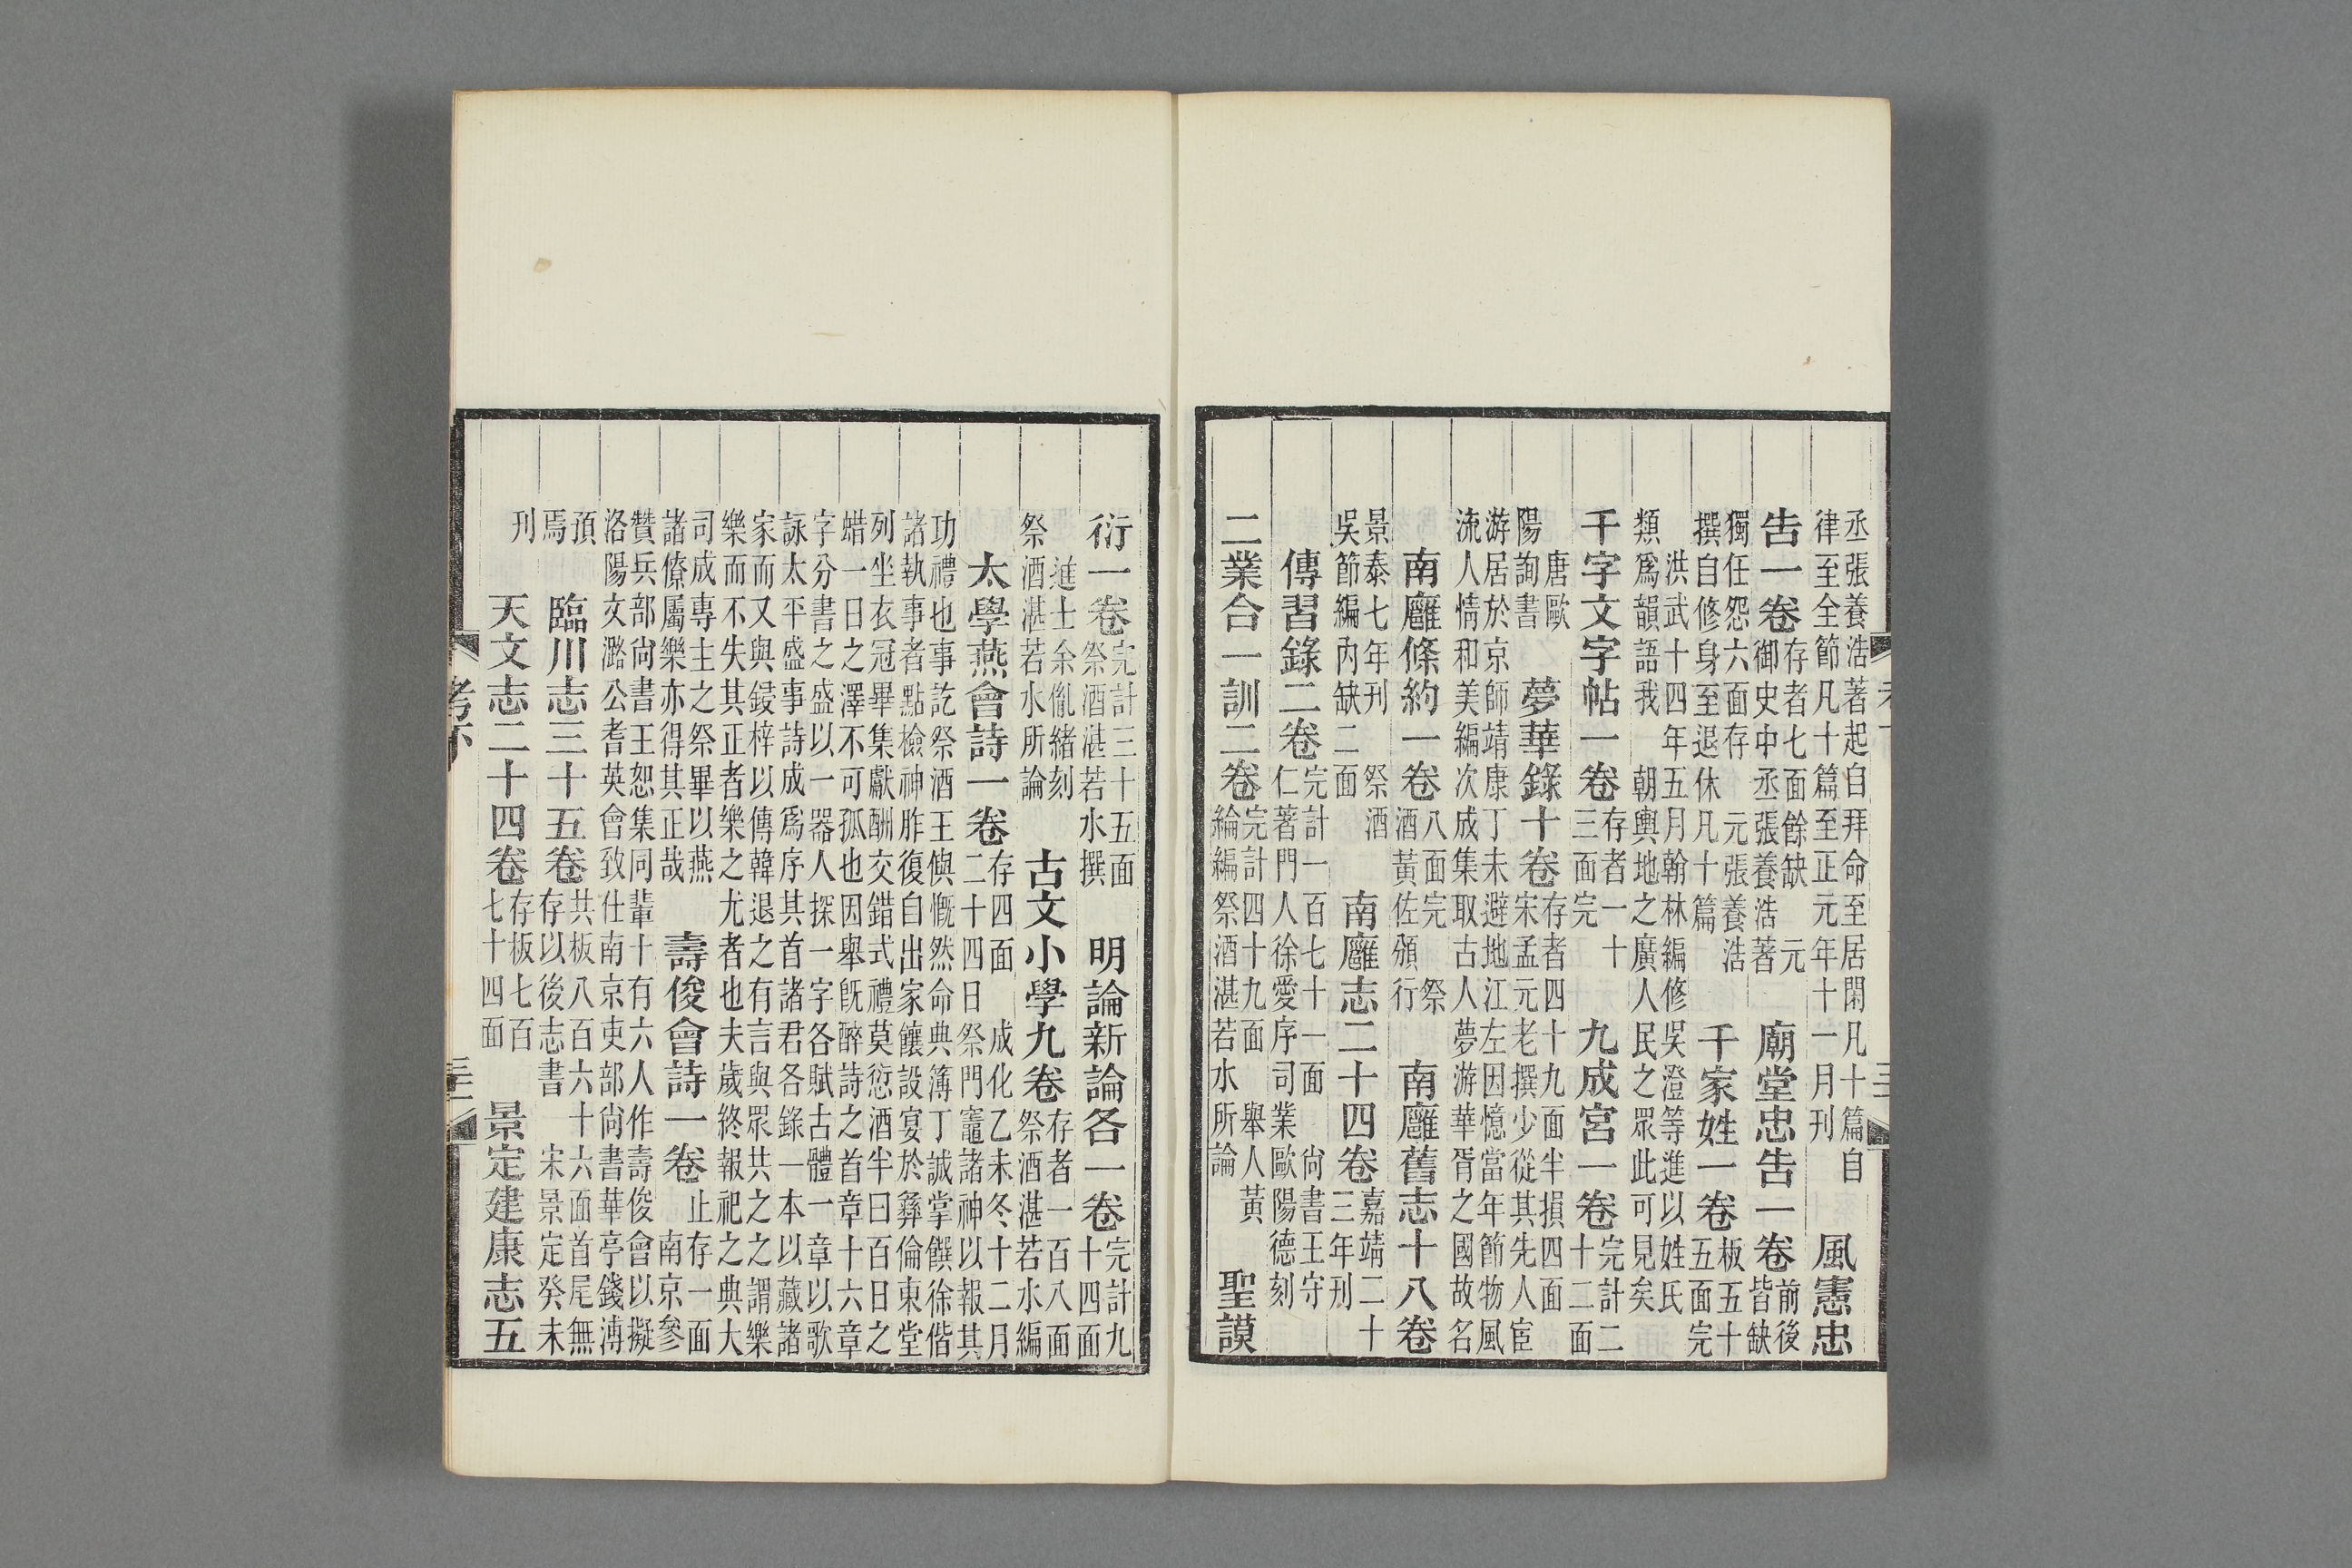 丞張養浩著起自拜命至居閑凡十篇自
律至全節凡十篇至正元年十一月刊
風憲忠
告一卷
存者七面餘缺　元
御史中丞張養浩著
廟堂忠告一卷
前後
皆缺
獨任怨六面存　元張養浩
撰自修身至退休凡十篇
千家姓一卷
板五十
五面完
洪武十四年五月翰林編修吳澄等進以姓氏
類爲韻語我　朝輿地之廣人民之眾此可見矣
千字文字帖一卷
存者一十
三面完
九成宮一卷
完計二
十二面
唐歐
陽詢書
夢華錄十卷
存者四十九面半損四面
宋孟元老撰少從其先人宦
游居於京師靖康丁未避地江左因憶當年節物風
流人情和美編次成集取古人夢游華胥之國故名
南廱條約一卷
八面完　祭
酒黃佐頒行
南廱舊志十八卷
景泰七年刊　祭酒
吳節編內缺二面
南廱志二十四卷
嘉靖二十
三年刊
傳習錄二卷
完計一百七十一面　尚書王守
仁著門人徐愛序司業歐陽德刻
二業合一訓二卷
完計四十九面　舉人黃
綸編祭酒湛若水所論
聖謨
衍一卷
完計三十五面
祭酒湛若水撰
明論新論各一卷
完計九
十四面
進士余胤緒刻
祭酒湛若水所論
古文小學九卷
存者一百八面
祭酒湛若水編
太學燕會詩一卷
存四面　成化乙未冬十二月
二十四日祭門竈諸神以報其
功禮也事訖祭酒王㒜慨然命典簿丁誠掌饌徐偕
諸執事者點檢神胙復自出家釀設宴於彝倫東堂
列坐衣冠畢集獻酬交錯式禮莫愆酒半曰百日之
蜡一日之澤不可孤也因舉旣醉詩之首章十六章
字分書之盛以一器人探一字各賦古體一章以歌
詠太平盛事詩成爲序其首諸君各錄一本以藏諸
家而又與鋟梓以傳韓退之有言與眾共之之謂樂
樂而不失其正者樂之尤者也夫歲終報祀之典大
司成專主之祭畢以燕
諸僚屬樂亦得其正哉
壽俊會詩一卷
止存一面
南京參
贊兵部尚書王恕集同輩十有六人作壽俊會以擬
洛陽文潞公耆英會致仕南京吏部尚書華亭錢溥
預
焉
臨川志三十五卷
共板八百六十六面首尾無
存以後志書　宋景定癸未
刊
天文志二十四卷
存板七百
七十四面
景定建康志五